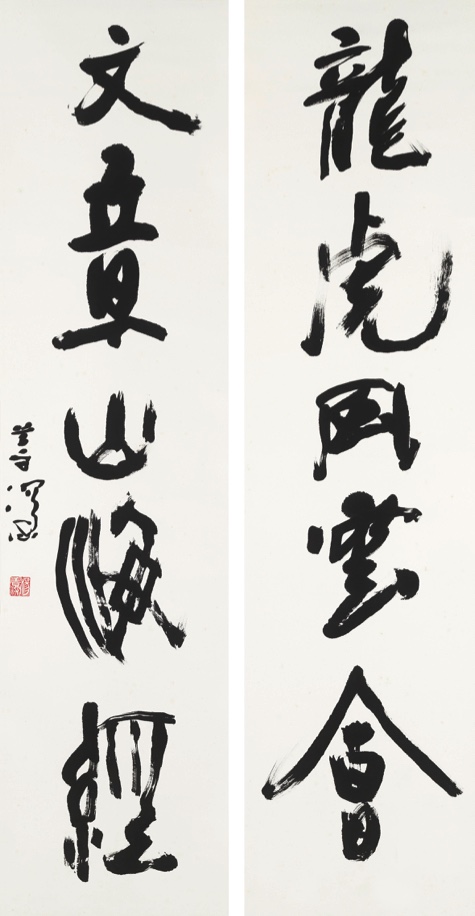 龍虎風雲會
文章山海經